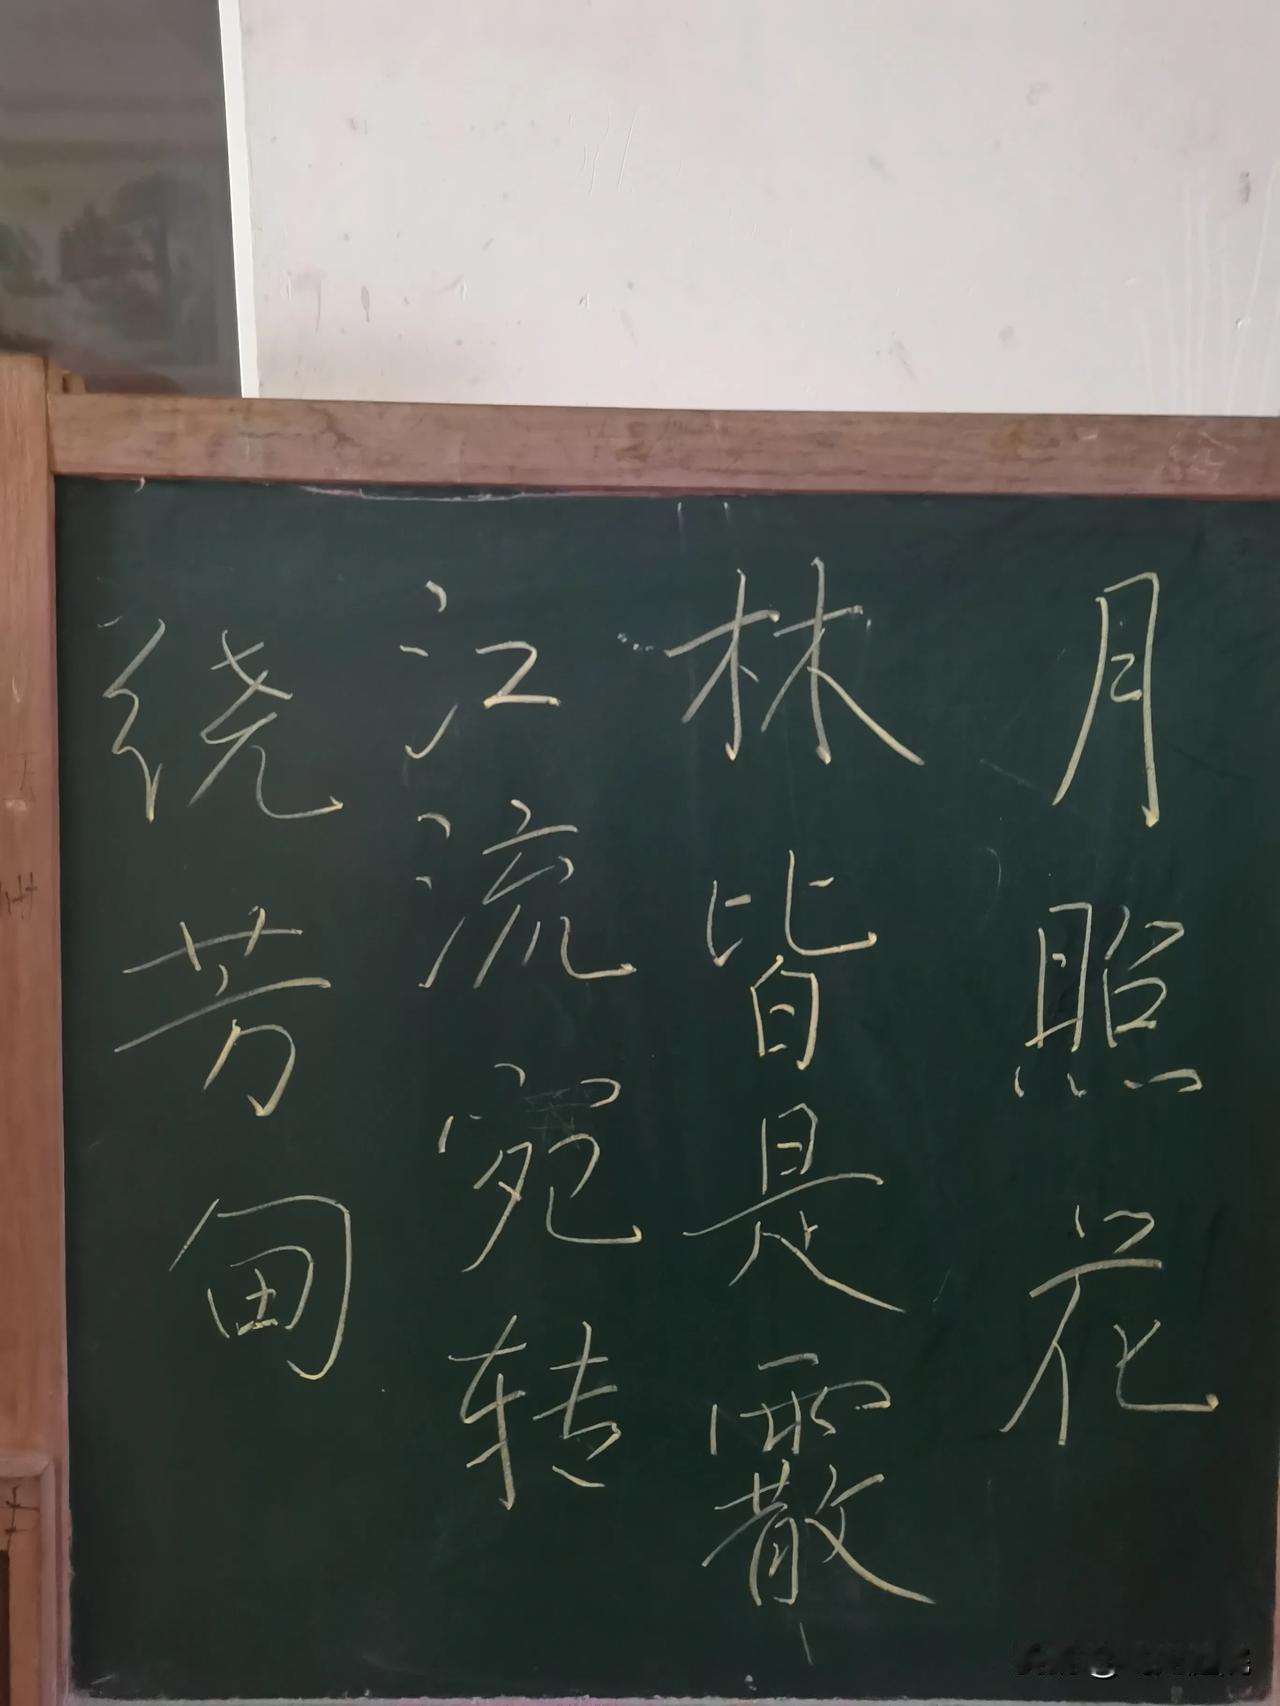 月照花
林皆是霰
江流宛转
绕芳甸